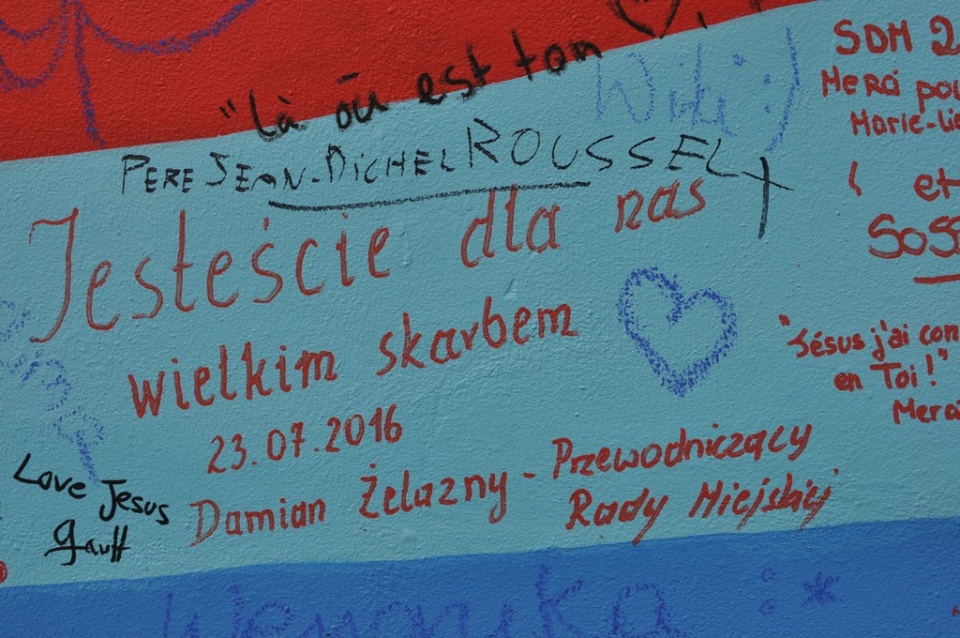 "là où est ton
Wiki :)
PERE JEAN-MICHEL ROUSSEL
Jesteście dla nas
wielkim skarbem
23.07.2016
Damian Żelazny - Przewodniczący
Rady Miejskiej
Love Jesus
SDM 2
Merci pou
Marie-
et
"Jésus j'ai con
en Toi!"
Merci
Weronika :*